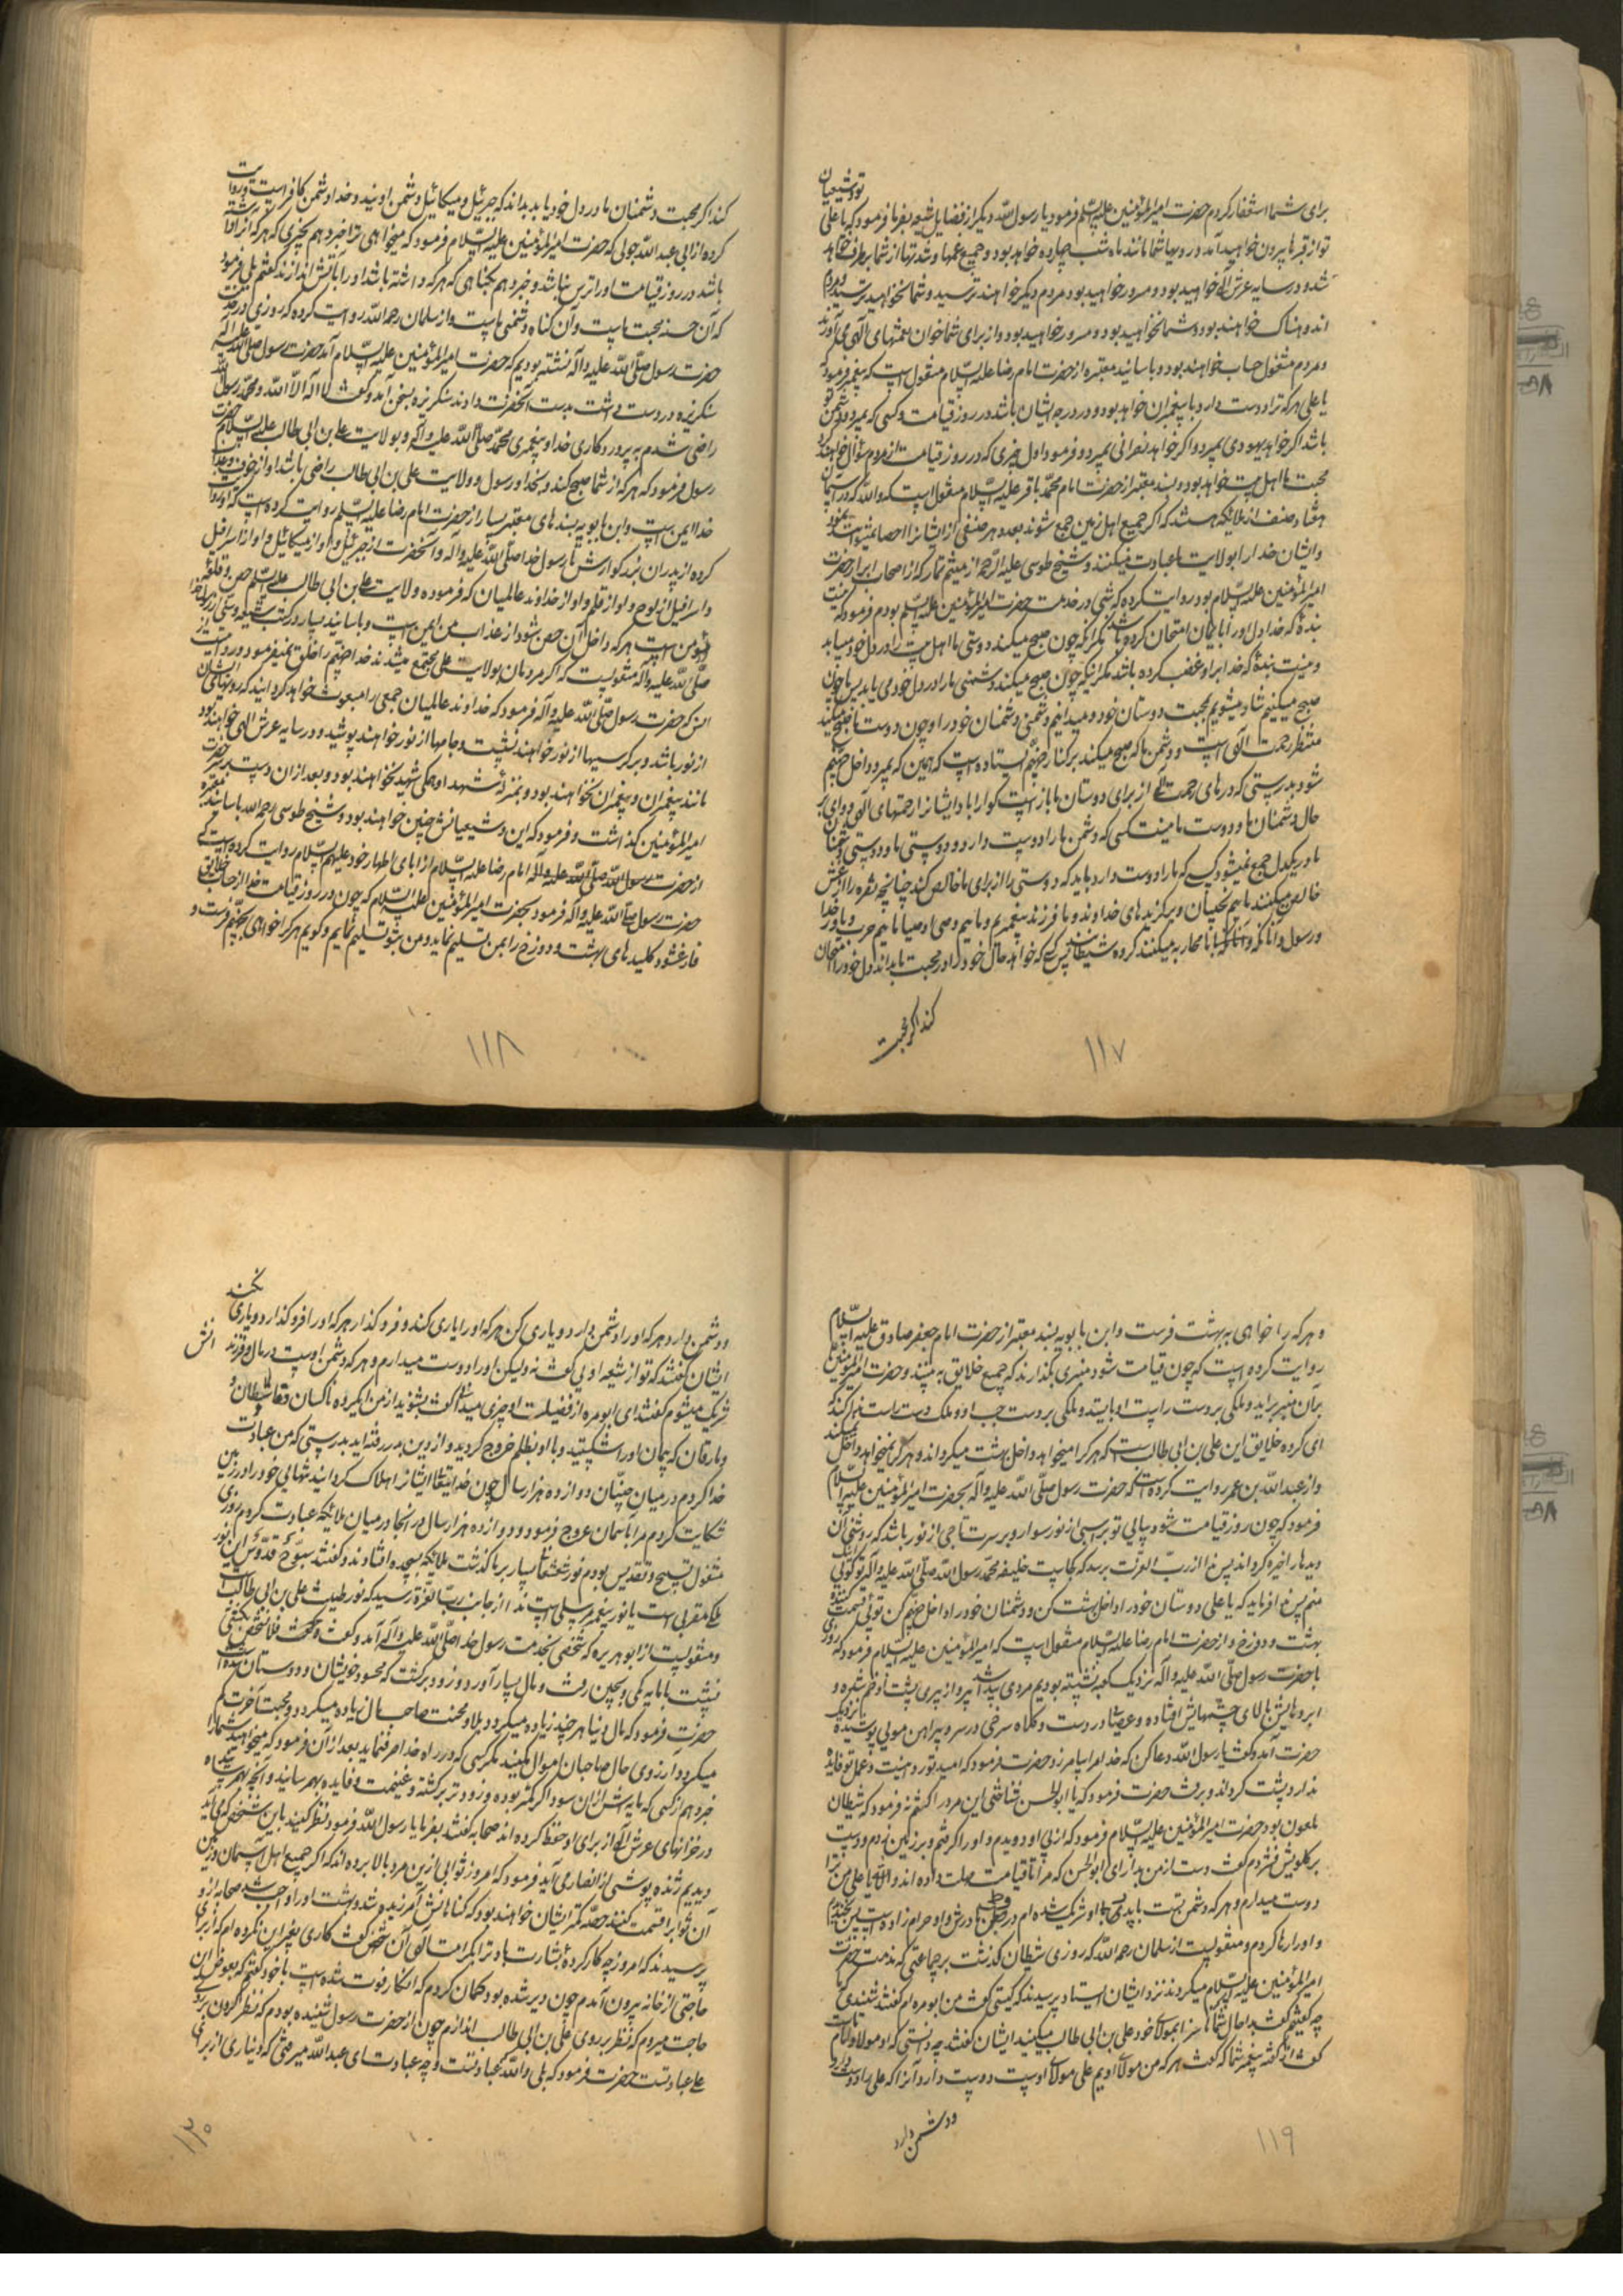 برای شما استغفار کردم حضرت امیرالمؤمنین علیه السّلم فرمود یا رسول الله دیگر از فضایل شیعه بفرما فرمود که یا علی تو و شیعیان
تو از قبرها بیرون خواهید آمد و رویهای شما مانند ماه شب چهارده خواهد بود و جمیع غمها و شدتها از شما برطرف خواهد
شده و در سایه عرش الهی خواهید بود و مسرور خواهید بود مردم دیگر خواهند ترسید و شما نخواهید ترسید و مردم
اندوهناک خواهند بود و شما نخواهید بود و مسرور خواهید بود و از برای شما خوان نعمتهای الهی می آورند
و مردم مشغول حساب خواهند بود و باسانید معتبره از حضرت امام رضا علیه السّلام منقول است که پیغمبر فرمود که
یا علی هر که ترا دوست دارد با پیغمبران خواهد بود و در درجه ایشان باشد در روز قیامت و کسی که بمیرد و دشمن تو
باشد اگر خواهد یهودی بمیرد و اگر خواهد نصرانی بمیرد و فرمود اول چیزی که در روز قیامت از مردم سؤال خواهند کرد
محبت ما اهل بیت خواهد بود و بسند معتبر از حضرت امام محمّد باقر علیه السّلام منقول است که والله که در آسمان
هفتاد صنف از ملائکه هستند که اگر جمیع اهل زمین جمع شوند بعدد هر صنفی از ایشانرا احصا نمیتوانند نمود
و ایشان خدا را بولایت ما عبادت میکنند و شیخ طوسی علیه الرّحمه از میثم تمار که از اصحاب ابرار حضرت
امیرالمؤمنین علیه السّلام بود روایت کرده که شبی در خدمت حضرت امیرالمؤمنین علیه السّلم بودم فرمود که نیست
بنده که خدا دل او را بایمان امتحان کرده باشد مگر آنکه چون صبح میکند دوستی ما اهل بیت را در دل خود مییابد
و نیست بنده که خدا بر او غضب کرده باشد مگر اینکه چون صبح میکند دشمنی ما را در دل خود می یابد پس ما چون
صبح میکنیم شاد میشویم بمحبت دوستان خود و میدانیم دشمنی دشمنان خود را و چون دوست ما صبح میکند
منتظر رحمت الهی است و دشمن ما که صبح میکند بر کنار جهنّم ایستاده است که همین که بمیرد داخل جهنّم
شود بدرستی که درهای رحمت الهی از برای دوستان ما باز است گوارا باد ایشانرا رحمتهای الهی و وای بر
حال دشمنان ما و دوست ما نیست کسی که دشمن ما را دوست دارد و دوستی ما و دوستی دشمنان
ما در یکدل جمع نمیشود کسی که ما را دوست دارد باید که دوستی را از برای ما خالص کند چنانچه نقره را از غش
خالص میکنند مائیم نجیبان و برگزیده های خداوند و ما فرزند پیغمبریم و مائیم وصی اوصیا مائیم حزب خدا
و رسول و آنانکه با ما محاربه میکنند گروه شیطانند پس کسی که خواهد حال خود را در محبت ما بداند دل خود را امتحان
کند اگر محبت
۱۱۷
کند اگر محبت دشمنان ما در دل خود یابد بداند که جبرئیل و میکائیل دشمن اویند و خدا دشمن کافر است و روایت
کرده از ابی عبد الله جدلی که حضرت امیرالمؤمنین علیه السّلام فرمود که میخواهی ترا خبر دهم بچیزی که هر که آنرا داشته
باشد در روز قیامت او را ترس نباشد و خبر دهم بگناهی که هر که داشته باشد او را بآتش اندازند گفتم بلی فرمود
که آن حسنه محبت ماست و آن گناه دشمنی ماست و از سلمان رحمه الله روایت کرده که روزی در خدمت
حضرت رسول صلّی الله علیه وآله نشسته بودیم که حضرت امیرالمؤمنین علیه السّلام آمد حضرت رسول صلّی الله علیه وآله
سنگریزه در دست داشت بدست آنحضرت داد سنگریزه بسخن آمد و گفت لا اله الّا الله و محمّد رسول الله
راضی شدم به پروردگاری خدا و پیغمبری محمّد صلّی الله علیه وآله و بولایت علی بن ابی طالب علیه السّلام حضرت
رسول فرمود که هر که از شما صبح کند و بخدا و رسول و ولایت علی بن ابی طالب راضی باشد او از خوف و عذاب
خدا ایمن است و ابن بابویه بسندهای معتبر بسیار از حضرت امام رضا علیه السّلم روایت کرده است که او روایت
کرده از پدران بزرگوارش تا رسول خدا صلّی الله علیه وآله و آنحضرت از جبرئیل و او از میکائیل و او از اسرافیل
و اسرافیل از لوح و او از قلم و او از خداوند عالمیان که فرموده ولایت علی بن ابی طالب علیه السّلم حصن و قلعه
من است هر که داخل آن حصن شود از عذاب من ایمن است و باسانید بسیار در کتب شیعه و سنی از رسول خدا
صلّی الله علیه وآله منقولست که اگر مردمان بولایت علی مجتمع میشدند خدا جهنّم را خلق نمیفرمود و روایت است از
انس که حضرت رسول صلّی الله علیه وآله فرمود که خداوند عالمیان جمعی را مبعوث خواهد گردانید که رویهای ایشان
از نور باشد و بر کرسیها از نور خواهند نشست و جامها از نور خواهند پوشید و در سایه عرش الهی خواهند بود
مانند پیغمبران و پیغمبران نخواهند بود و بمنزله شهدا و همگی شهید نخواهند بود و بعد از آن دست بر سر حضرت
امیرالمؤمنین گذاشت و فرمود که این و شیعیانش چنین خواهند بود و شیخ طوسی رحمه الله باسانید معتبره
از حضرت رسول الله صلّی الله علیه وآله امام رضا علیه السّلام از آبای اطهار خود علیهم السّلام روایت کرده است که
حضرت رسول صلّی الله علیه وآله فرمود بحضرت امیرالمؤمنین علیه السّلام که چون در روز قیامت خدا از حساب خلایق
فارغ شود کلیدهای بهشت و دوزخ را بمن تسلیم نماید و من بتو تسلیم نمایم و گویم هر کرا خواهی بجهنّم فرست و
۱۱۸
و هر که را خواهی به بهشت فرست و ابن بابویه بسند معتبر از حضرت امام جعفر صادق علیه السّلام
روایت کرده است که چون قیامت شود منبری بگذارند که جمیع خلایق به بینند و حضرت امیرالمؤمنین
بر آن منبر برآید و ملکی بر دست راست او بایستد و ملکی بر دست چپ او و ملک دست راست ندا کند که
ای گروه خلایق این علی بن ابی طالب است که هر کرا میخواهد داخل بهشت میگرداند و هر کرا نمیخواهد داخل نمیکند
و از عبد الله بن عمر روایت کرده است که حضرت رسول صلّی الله علیه وآله بحضرت امیرالمؤمنین علیه السّلام
فرمود که چون روز قیامت شود بیائی تو بر اسبی از نور سوار و بر سرت تاجی از نور باشد که روشنی آن
دیدها را خیره گرداند پس ندا از ربّ العزّت برسد که کجاست خلیفه محمّد رسول الله صلّی الله علیه وآله تو گوئی اینک
منم پس ندا فرماید که یا علی دوستان خود را داخل بهشت کن و دشمنان خود را داخل جهنّم کن توئی قسمت کننده
بهشت و دوزخ و از حضرت امام رضا علیه السّلام منقول است که امیرالمؤمنین علیه السّلام فرمود که روزی
با حضرت رسول صلّی الله علیه وآله نزدیک کعبه نشسته بودیم مردی پیدا شد پیر و از پیری پشت او خم شده و
ابروهایش بالای چشمهایش افتاده و عصا در دست و کلاه سرخی در سر و پیراهن موئی پوشیده نزدیک
حضرت آمد و گفت یا رسول الله دعا کن که خدا مرا بیامرزد حضرت فرمود که امید تو رد است و عمل تو فایده
ندارد پشت گردانید و برفت حضرت فرمود که یا ابوالحسن شناختی این مرد را گفتم نه فرمود که شیطان
ملعون بود حضرت امیرالمؤمنین علیه السّلام فرمود که از پی او دویدم و او را گرفتم و بر زمین زدم و دست
بر گلویش فشردم گفت دست از من بدار ای ابوالحسن که مرا تا قیامت مهلت داده اند والله یا علی من ترا
دوست میدارم و هر که دشمن تست با پدرش او شریک شده ام در وطی مادرش و او حرام زاده است پس خندیدم
و او را رها کردم و منقولست از سلمان رحمه الله که روزی شیطان گذشت بر جماعتی که مذمت حضرت
امیرالمؤمنین علیه السّلام میکردند نزد ایشان ایستاد پرسیدند که کیستی گفت من ابو مره ام گفتند شنیدی ما
چه گفتیم گفت بدا حال شما سزا بمولای خود علی بن ابی طالب میگویید ایشان گفتند چه دانستی که او مولای ماست
گفت از گفته پیغمبر شما که گفت هر که من مولای اویم علی مولای اوست دوست دارد آنرا که علی را دوست دارد
و دشمن دارد
۱۱۹
و دشمن دارد هر که او را دشمن دارد و یاری کن هر که او را یاری کند و فرو گذار هر که او را فرو گذارد و یاری نکند
ایشان گفتند که تو از شیعه اوئی گفت نه ولیکن او را دوست میدارم و هر که دشمن اوست در مال و فرزندانش
شریک میشوم گفتند ای ابو مره از فضیلت او چیزی میدانی گفت بشنوید از من ای گروه ناکسان و قاسطان و
و مارقان که پیمان او را شکستید و با او بظلم خروج کردید و از دین بدر رفته اید بدرستی که من عبادت
خدا کردم در میان جنیّان دوازده هزار سال چون خدایتعالی ایشانرا هلاک گردانید تنهائی خود را در زمین
شکایت کردم مرا بآسمان عروج فرمود و دوازده هزار سال در آنجا در میان ملائکه عبادت کردم روزی
مشغول تسبیح و تقدیس بودم نور شعشعانی بسیار بر ما گذشت ملائکه بسجده افتادند و گفتند سبّوح قدّوس این نور
ملک مقربی است یا نور پیغمبر مرسلی است ندا از جانب ربّ العزّة رسید که نور طینت علی بن ابی طالب است
و منقولست از ابو هریره که شخصی بخدمت رسول خدا صلّی الله علیه وآله آمد و گفت فلان شخص بکشتی
نشست با مایه کمی و بچین رفت و مال بسیار آورد و زود برگشت که محسود خویشان و دوستان شده است
حضرت فرمود که مال دنیا هر چند زیاده میگردد بلا و محنت صاحب مال زیاده میگردد و محبت آخرت کم
میگردد آرزوی حال صاحبان اموال مکنید مگر کسی که در راه خدا صرف نماید بعد از آن فرمود که میخواهید شما را
خبر دهم از کسی که مایه اش از آن سوداگر کمتر بوده و زودتر برگشته و غنیمت و فایده بهم رسانید و آنچه بهم رسانیده
در خزانهای عرش الهی از برای او حفظ کرده اند صحابه گفتند بفرما یا رسول الله فرمود نظر کنید باین شخص که می آید
دیدیم ژنده پوشی از انصار می آید فرمود که امروز ثوابی از این مرد بالا برده اند که اگر جمیع اهل آسمان و زمین
آن ثوابرا قسمت کنند حصّه کمتر ایشان خواهند بود که گناهانش آمرزیده شود و بهشت او را واجب شد صحابه از او
پرسیدند که امروز چه کار کرده بشارت باد ترا بکرامت الهی آن شخص گفت کاری بغیر این نکرده ام که از برای
حاجتی از خانه بیرون آمدم چون دیر شده بود گمان کردم که آنکار فوت شده است با خود گفتم که بعوض آن
حاجت میروم که نظر بر روی علی بن ابی طالب اندازم چون از حضرت رسول شنیده بودم که نظر کردن بر روی
علی عبادتست حضرت فرمود که بلی والله عبادتست و چه عبادت ای عبد الله میرفتی که دیناری از برای
۱۲۰